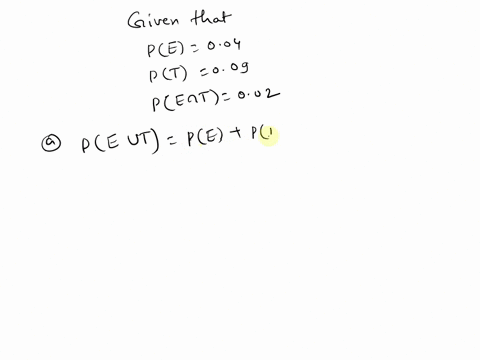 Given that
P(E) = 0.04
P(T) = 0.09
P(E∩T) = 0.02
ⓐ P(E ∪T) = P(E) + P(